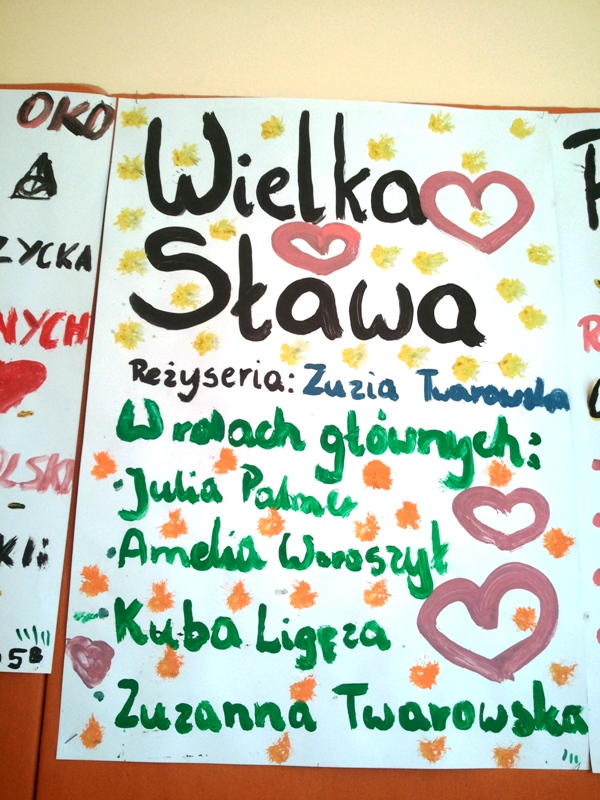 OKO
ZYCKA
NYCH
LSKI
KI:
58
Wielka
Sława
Reżyseria: Zuzia Twarowska
W rolach głównych:
Julia
Amelia Woroszył
Kuba Ligęza
Zuzanna Twarowska